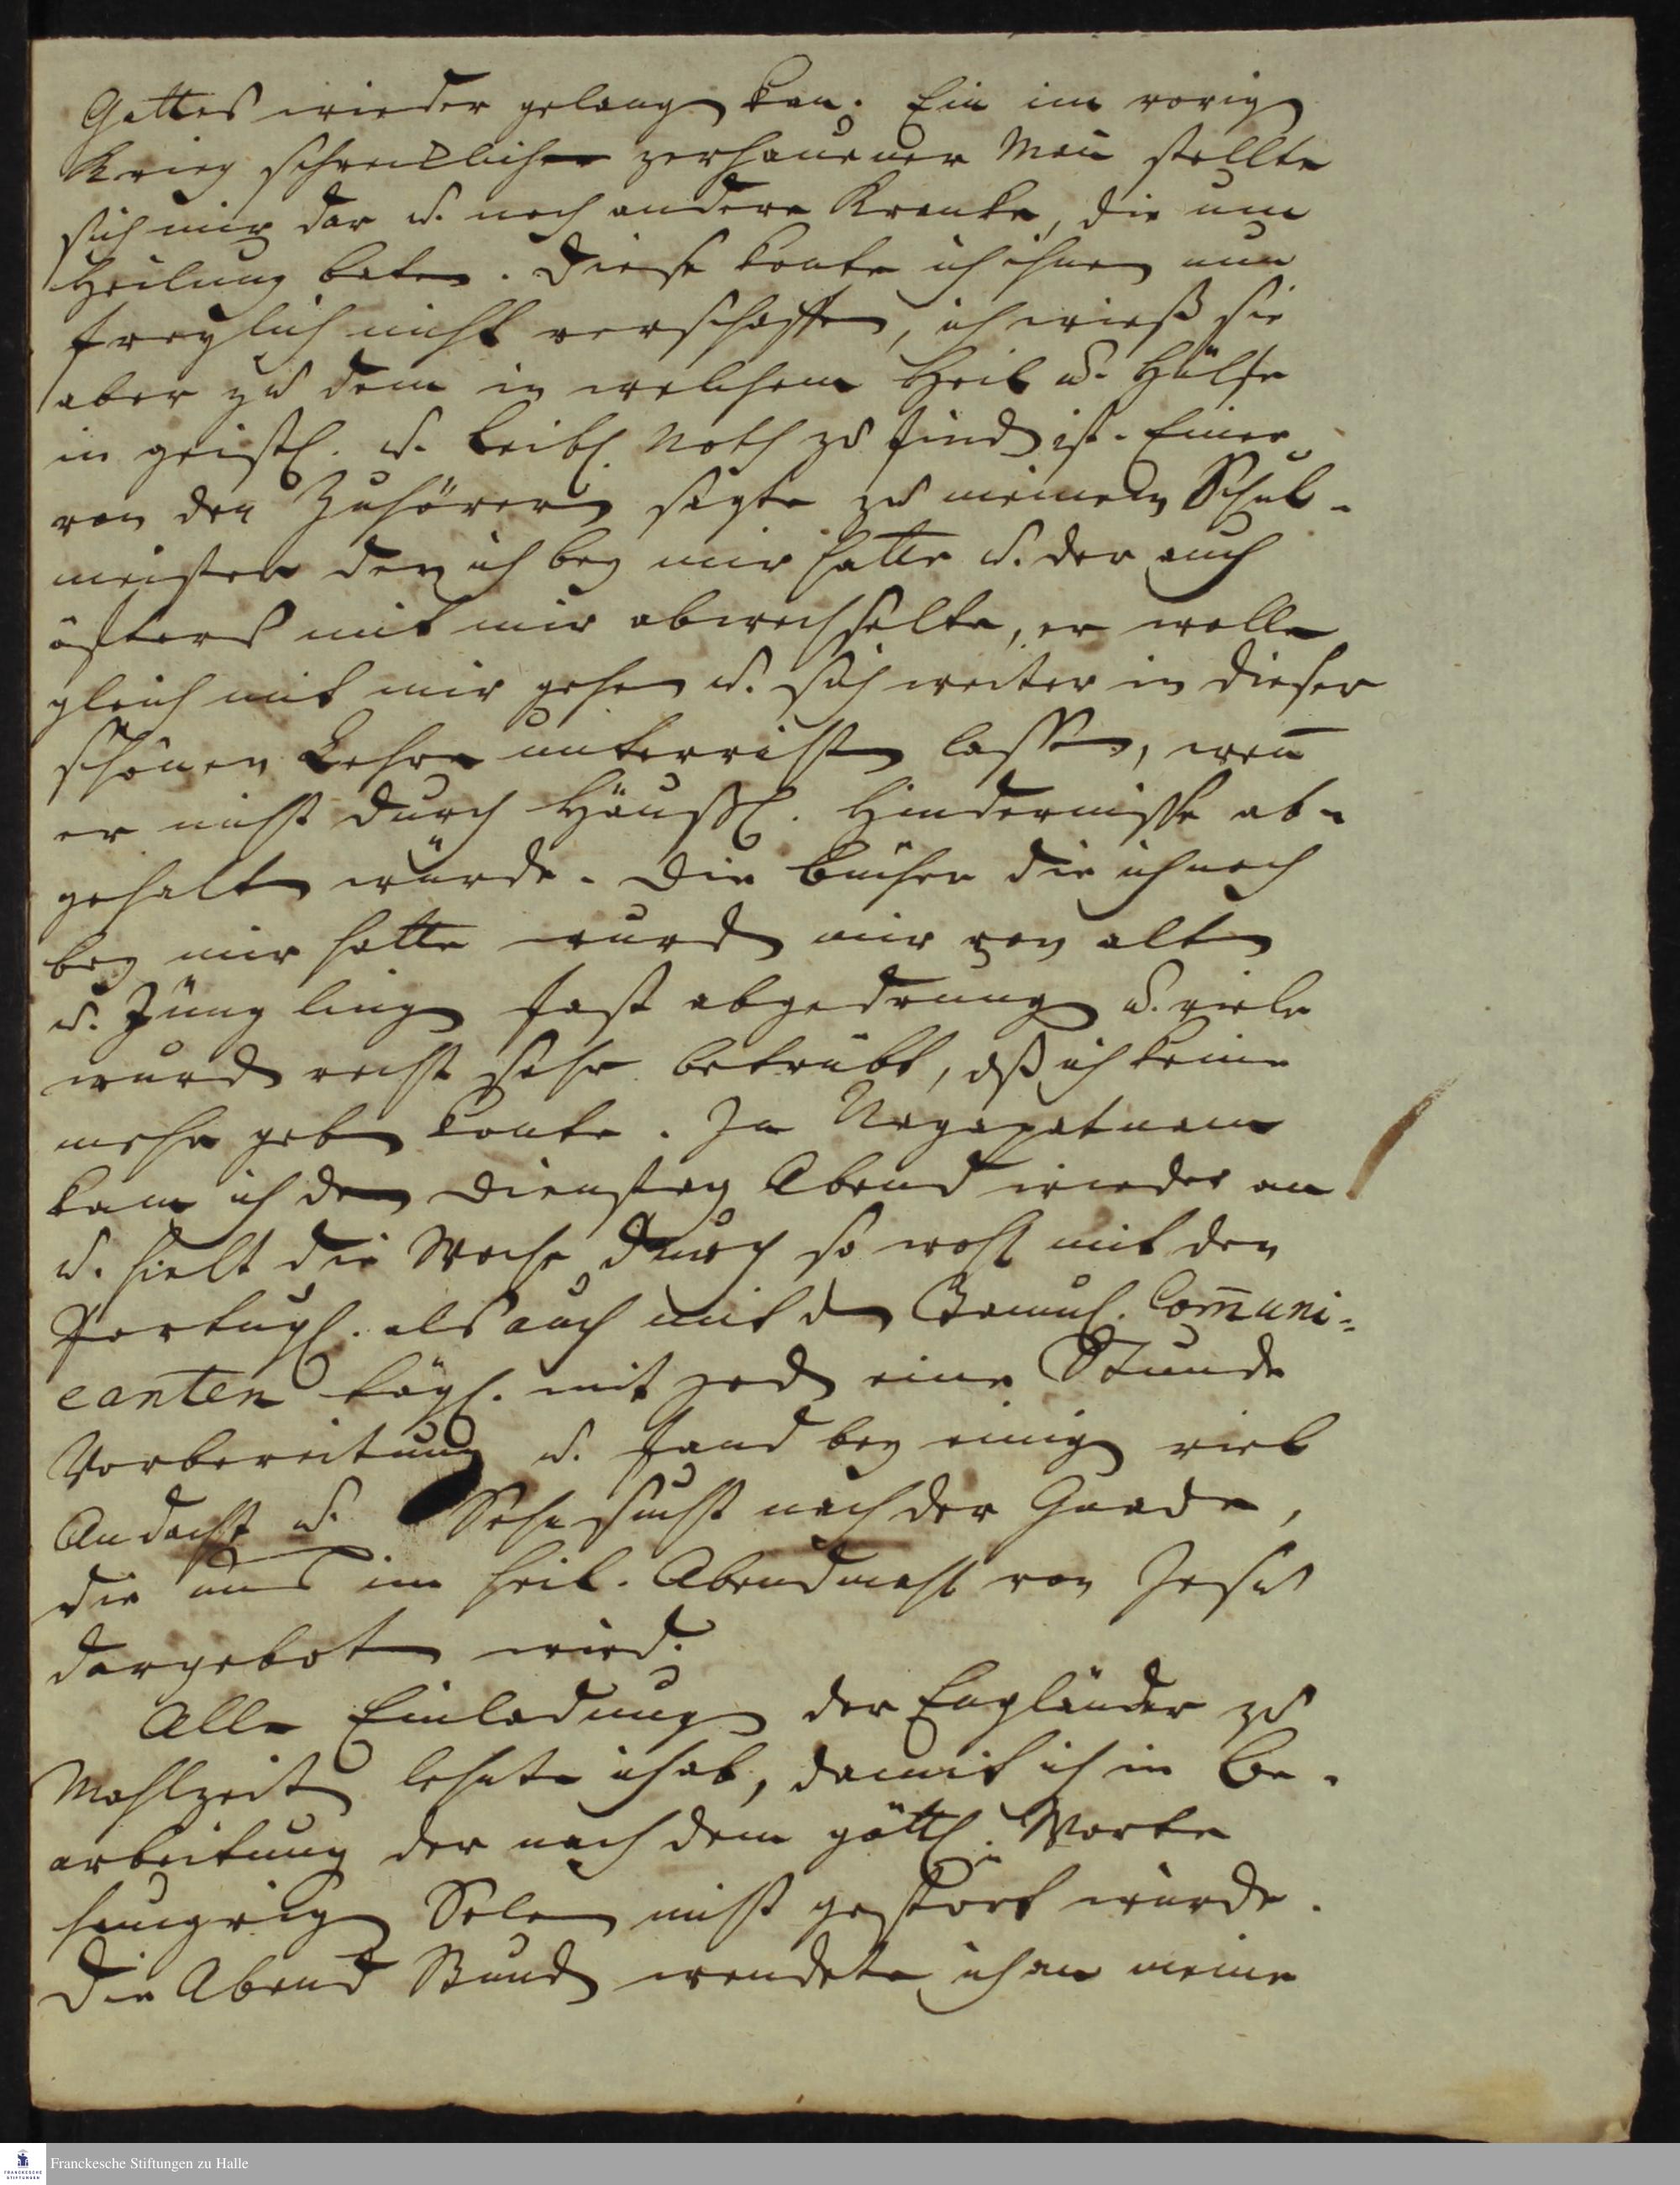 Gottes wieder gelangen kan. Ein im vorigen
Krieg schrecklicher zerhauener Mann stellte
sich mir dar u. noch andere Krancke, die um
Heilung baten. Diese konte ich ihnen nun
freylich nicht verschaffen, ich wieß sie
aber zu dem in welchem Heil u. Hülfe
in geistl. u. leibl. Noth zu finden ist. Einer
von den Zuhörern sagte zu meinem Schul-
meister den ich bey mir hatte u. der auch
öfters mit mir abwechselte, er wolle
gleich mit mir gehen u. sich weiter in dieser
schönen Lehre unterrichten lassen, wenn
er nicht durch Häußl. Hindernisse ab-
gehalten würde. Die Bücher die ich noch
bey mir hatte wurden mir von alten
u. Jünglingen fast abgedrungen u. viele
wurden recht sehr betrübt, daß ich keine
mehr geben konte. In Nagapatnam
kam ich den Dienstag Abend wieder an
u. hielt die Woche durch so wohl mit den
Portugl. als auch mit den Tamul. Com̅uni-
canten tägl. mit jeden eine Stunde
Vorbereitung u. fand bey einigen viel
Andacht u. Sehnsucht nach der Gnade,
die uns im heil. Abendmahl von Jesu
dargeboten wird.
Alle Einladungen der Engländer zu
Mahlzeiten lehnte ich ab, damit ich in Be-
arbeitung der nach dem göttl. Worte
hungrigen Selen nicht gestört würde.
Die Abend Stunden wendete ich an meine
Franckesche Stiftungen zu Halle
FRANCKESCHE
STIFTUNGEN